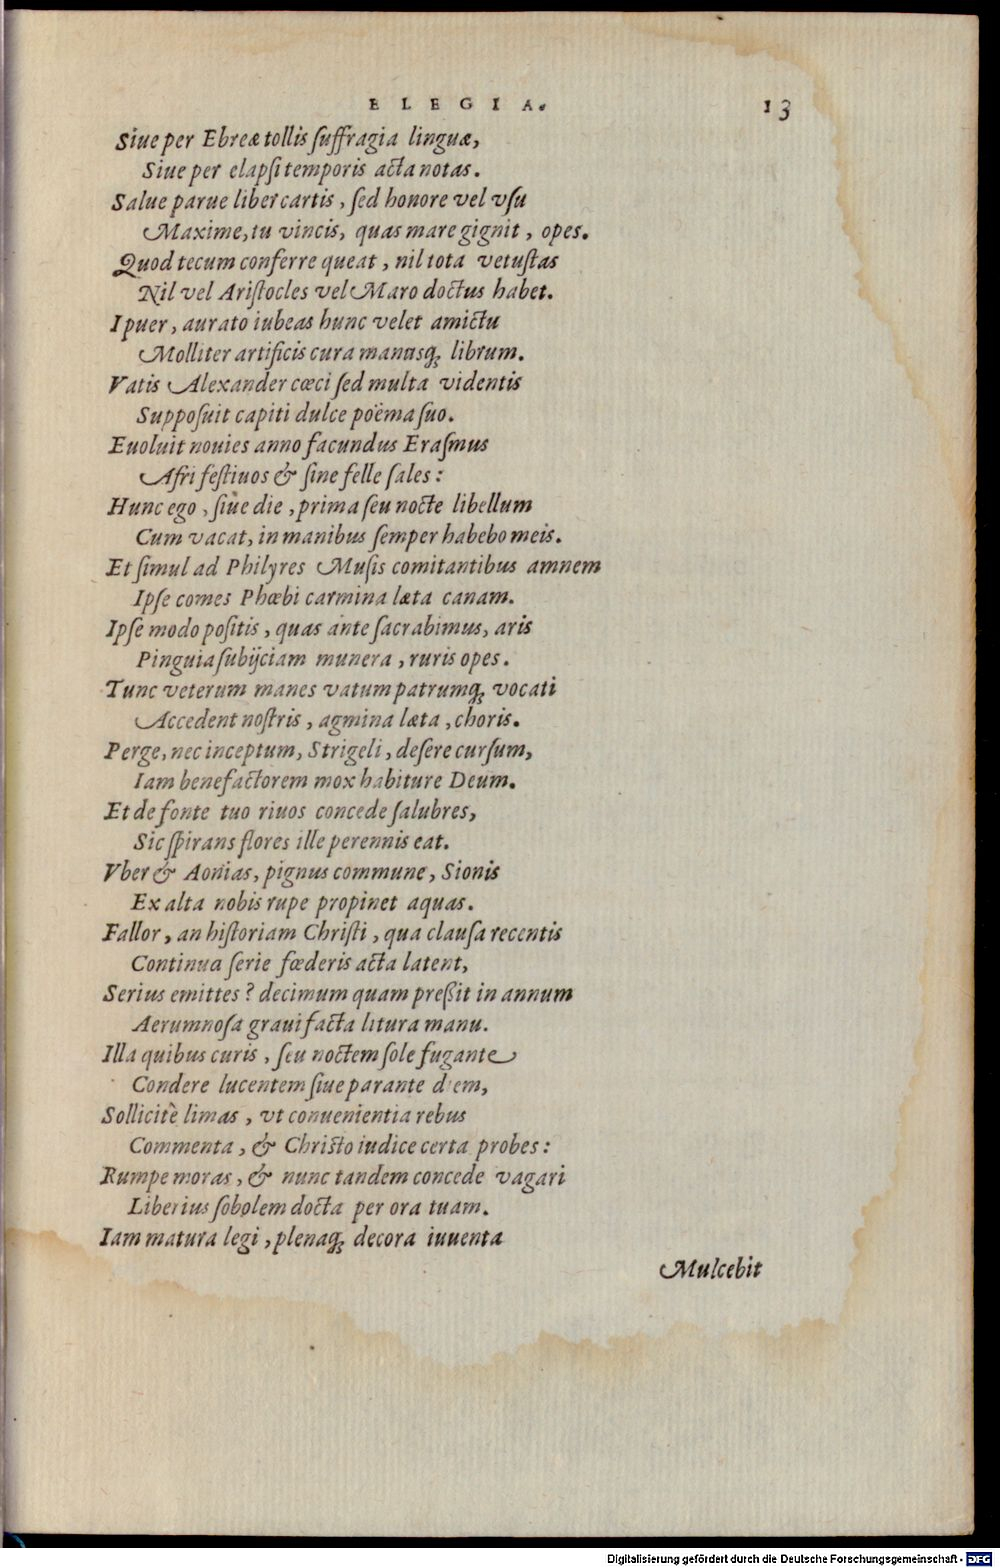 ELEGIA. 13
Siue per Ebreæ tollis ſuffragia linguæ,
Siue per elapſi temporis acta notas.
Salue parue liber cartis, ſed honore vel vſu
Maxime, tu vincis, quas mare gignit, opes.
Quod tecum conferre queat, nil tota vetuſtas
Nil vel Ariſtocles vel Maro doctus habet.
I puer, aurato iubeas hunc velet amictu
Molliter artificis cura manusq́ꝫ librum.
Vatis Alexander cœci ſed multa videntis
Suppoſuit capiti dulce poëma ſuo.
Euoluit nouies anno facundus Eraſmus
Afri feſtiuos & ſine felle ſales:
Hunc ego, ſiue die, prima ſeu nocte libellum
Cum vacat, in manibus ſemper habebo meis.
Et ſimul ad Philyres Muſis comitantibus amnem
Ipſe comes Phœbi carmina læta canam.
Ipſe modo poſitis, quas ante ſacrabimus, aris
Pinguia ſubijciam munera, ruris opes.
Tunc veterum manes vatum patrumq́ꝫ vocati
Accedent noſtris, agmina læta, choris.
Perge, nec inceptum, Strigeli, deſere curſum,
Iam benefactorem mox habiture Deum.
Et de fonte tuo riuos concede ſalubres,
Sic ſpirans flores ille perennis eat.
Vber & Aonias, pignus commune, Sionis
Ex alta nobis rupe propinet aquas.
Fallor, an hiſtoriam Chriſti, qua clauſa recentis
Continua ſerie fœderis acta latent,
Serius emittes? decimum quam preßit in annum
Aerumnoſa graui facta litura manu.
Illa quibus curis, ſeu noctem ſole fugante
Condere lucentem ſiue parante diem,
Sollicitè limas, vt conuenientia rebus
Commenta, & Chriſto iudice certa probes:
Rumpe moras, & nunc tandem concede vagari
Liberius ſobolem docta per ora tuam.
Iam matura legi, plenaq́ꝫ decora iuuenta
Mulcebit
Digitalisierung gefördert durch die Deutsche Forschungsgemeinschaft - DFG